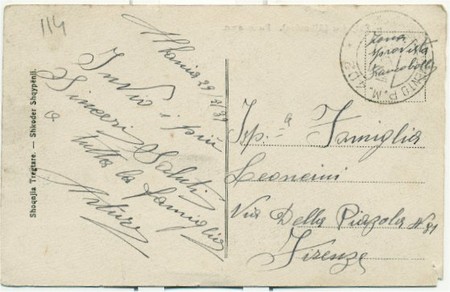 114
Albania 29/3/81
Invio i più
Sinceri Saluti
a
tutta la famiglia
Arturo
Shoqnija Tregtare. — Shkoder Shqypënij.
Zona
sprovvista
francobolli
P.M. 402
Sp.a Famiglia
Leoncini
Via Della Piazola N° 81
Firenze